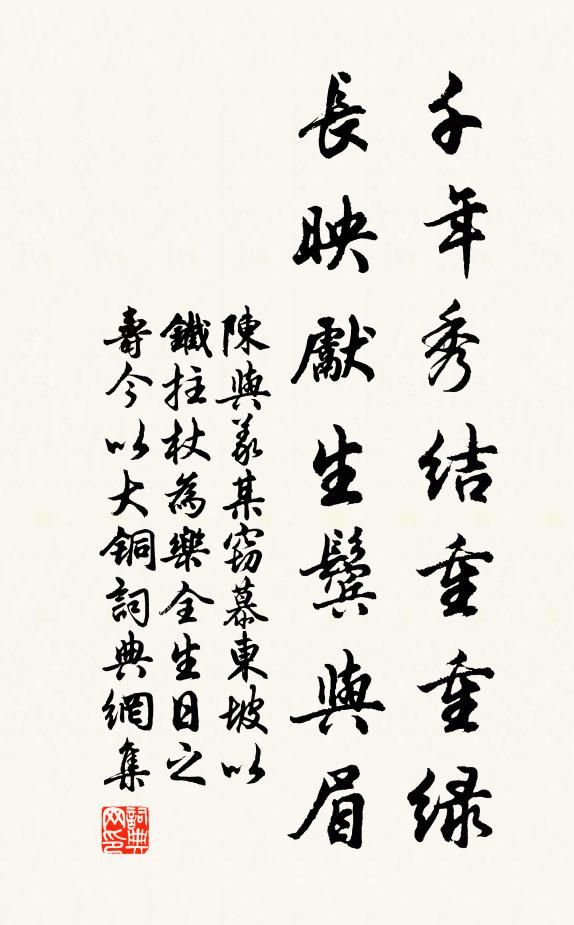 千年秀結重重綠
長映獻生鬓與眉
陳與義某竊慕東坡以
鐵拄杖為樂全生日之
壽今以大銅詞典網集
詞典网印